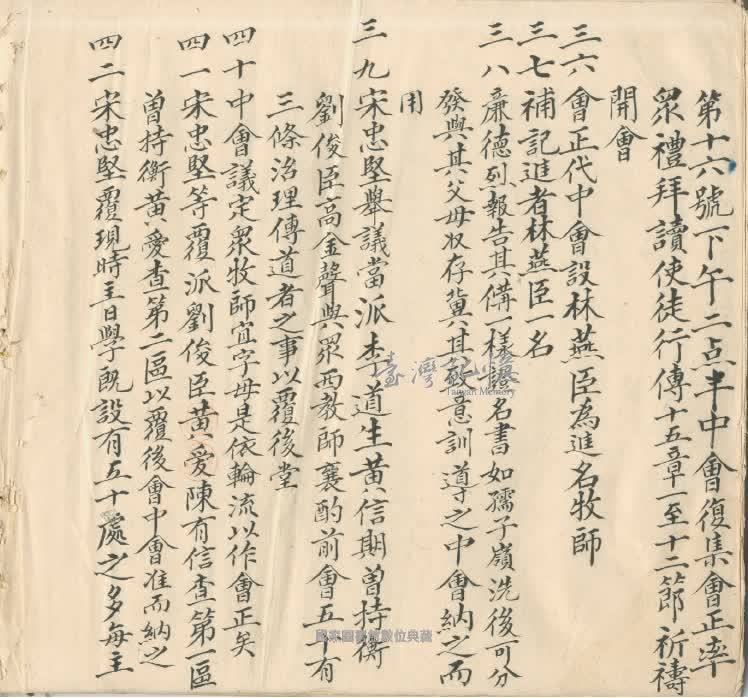 第十六號下午二点半中會復集會正率
眾禮拜讀使徒行傳十五章一至十二節祈禱
開會
三六會正代中會設林燕臣為進名牧師
三七補記進者林燕臣一名
三八廉德烈報告其備一樣證名書如孺子嶺洗後可分
發與其父母收存冀其敬意訓導之中會納之而
用
三九宋忠堅舉議當派李道生黃信期曾持衡
劉俊臣高金聲與眾西教師襄酌前會五十有
三條治理傳道者之事以覆後堂
四十中會議定眾牧師宜字母是依輪流以作會正矣
四一宋忠堅等覆派劉俊臣黃愛陳有信查第一區
曾持衡黃愛查第二區以覆後會中會准而納之
四二宋忠堅覆現時主日學既設有五十處之多每主
臺灣記憶
Taiwan Memory
國家圖書館數位典藏